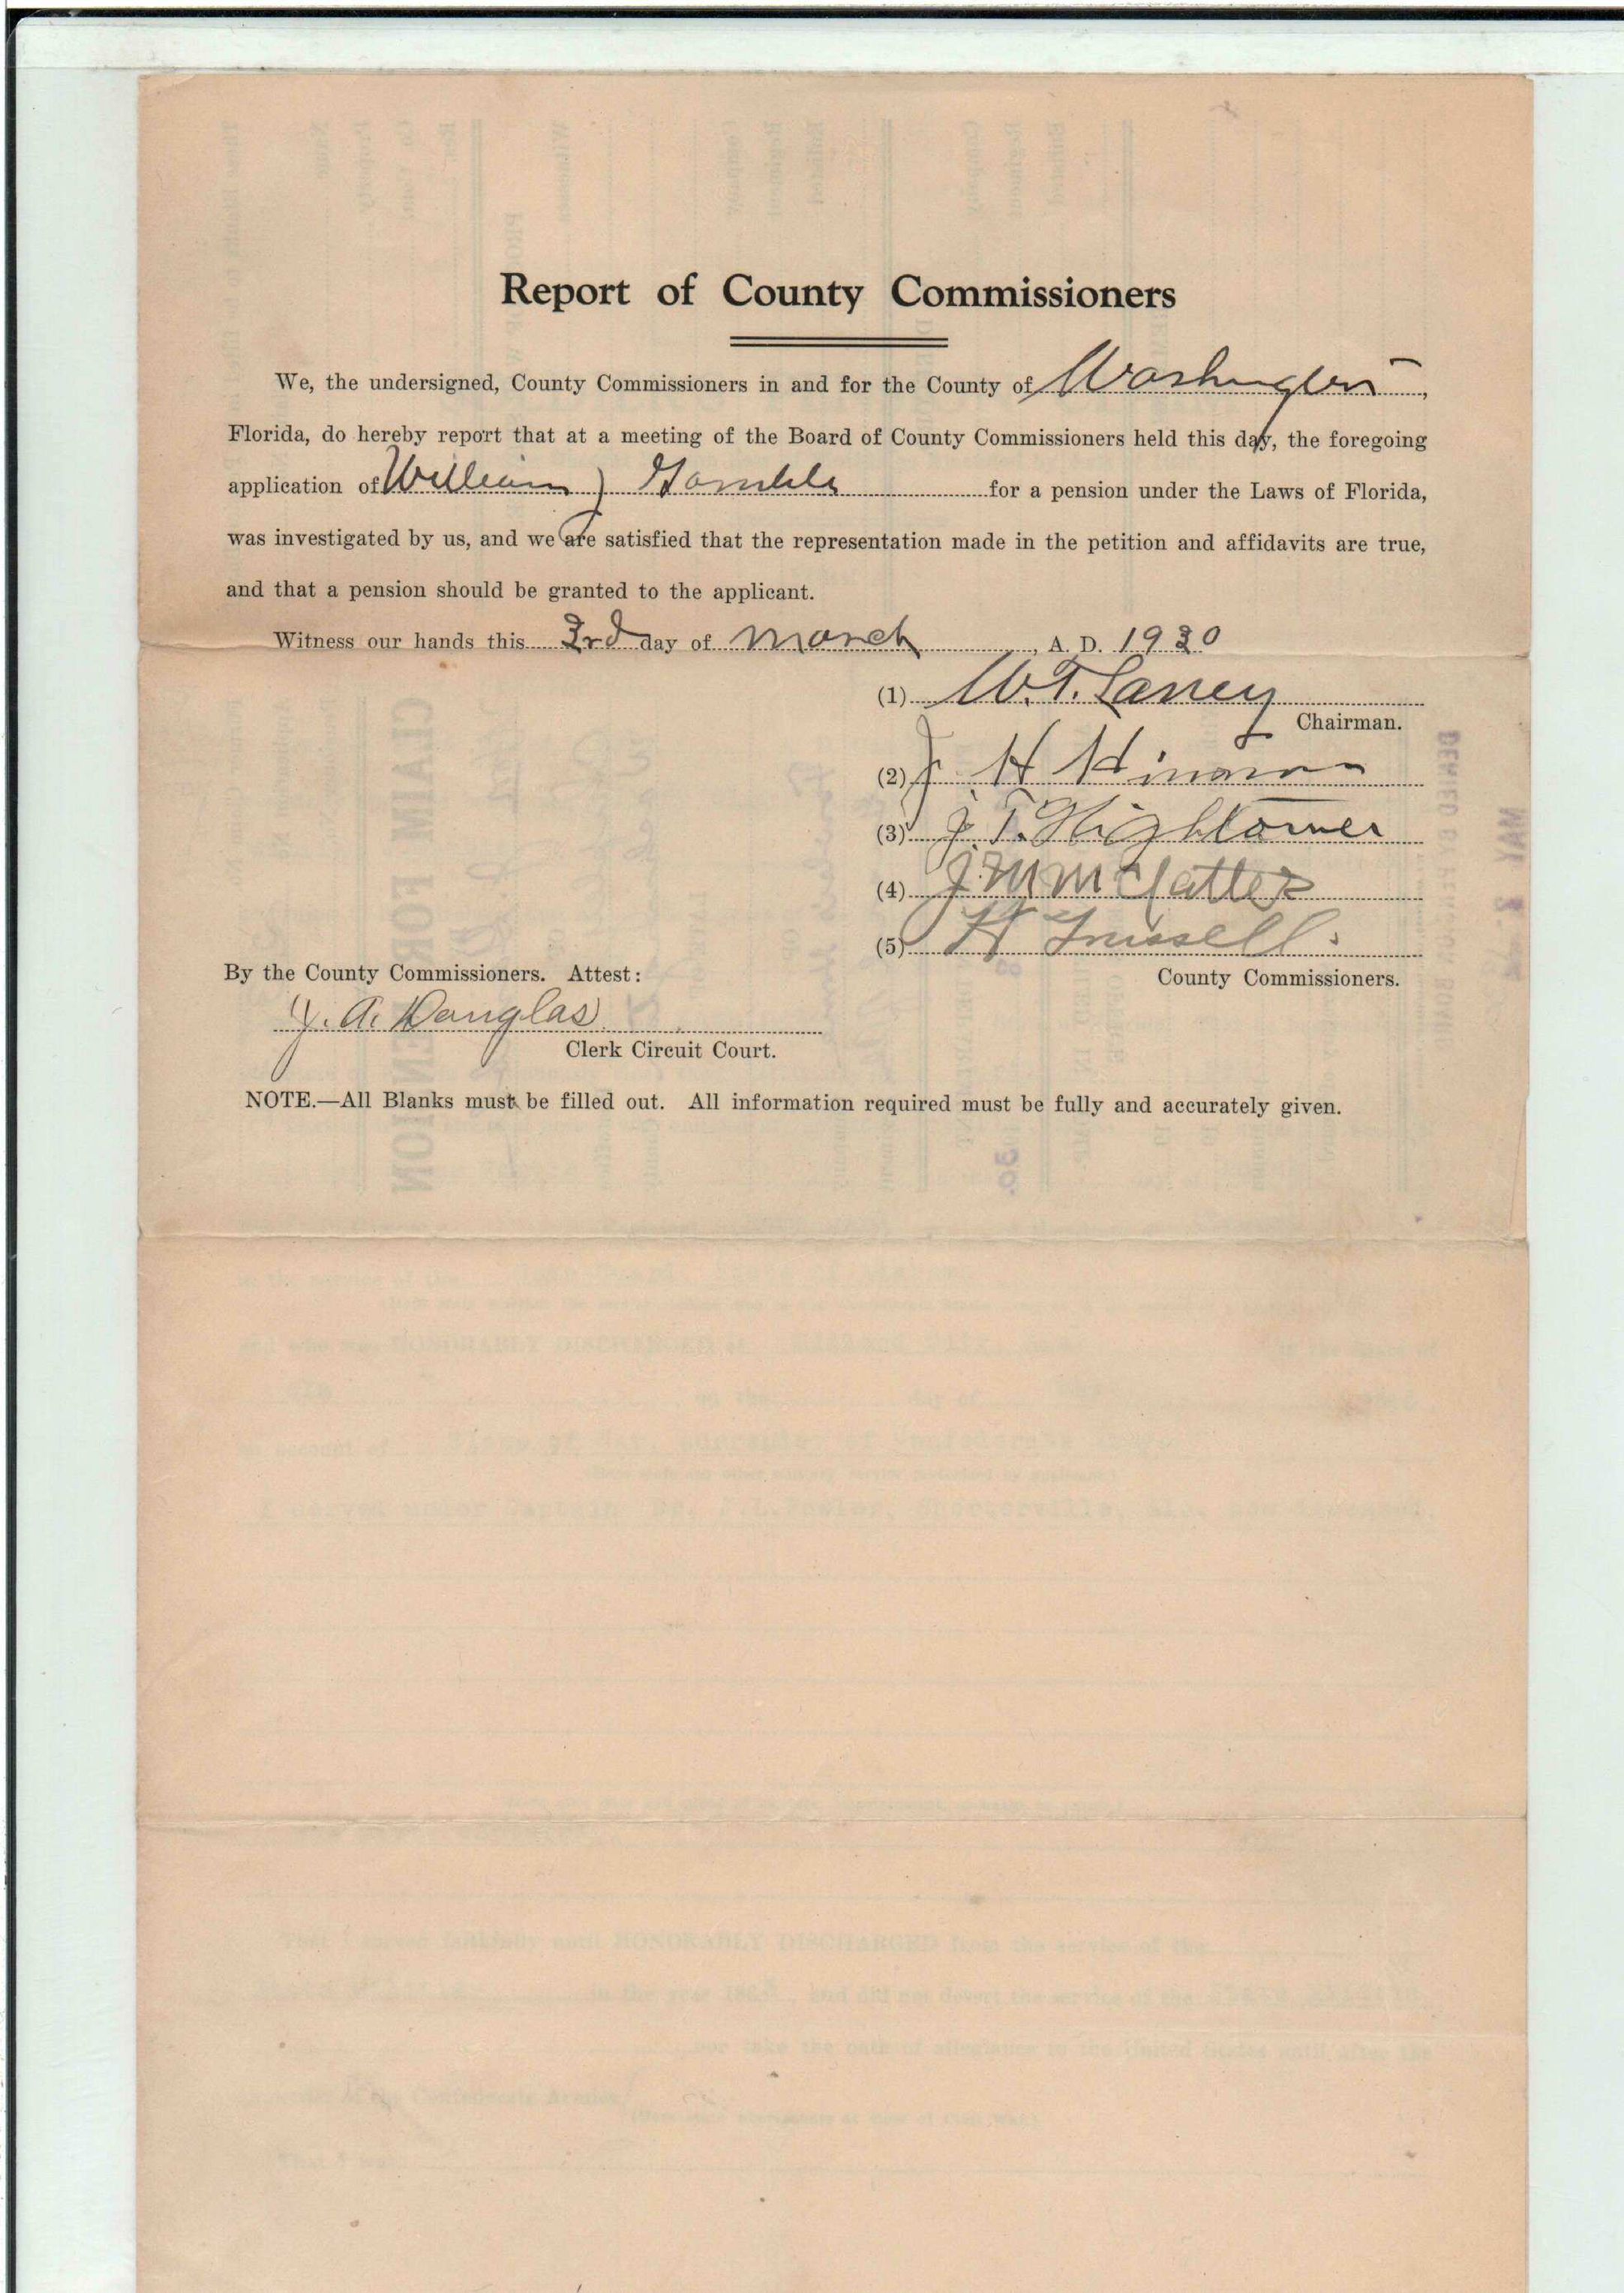 Report of County Commissioners
We, the undersigned, County Commissioners in and for the County of Washington,
Florida, do hereby report that at a meeting of the Board of County Commissioners held this day, the foregoing
application of William J Gamble for a pension under the Laws of Florida,
was investigated by us, and we are satisfied that the representation made in the petition and affidavits are true,
and that a pension should be granted to the applicant.
Witness our hands this 3rd day of March, A. D. 1930
(1) W. T. Laney
Chairman.
(2) J. H Hinson
(3) J. T. Hightower
(4) J. M
(5) H Trussell.
County Commissioners.
By the County Commissioners. Attest:
J. A. Douglas
Clerk Circuit Court.
NOTE.—All Blanks must be filled out. All information required must be fully and accurately given.